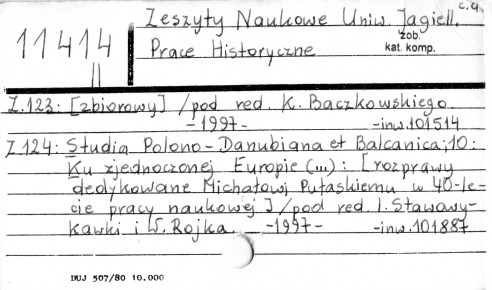 c.q.
Zeszyty Naukowe Uniw. Jagiell.
zob.
kat. komp.
11414
||
Prace Historyczne
Z.123: [zbiorowy] / pod red. K. Baczkowskiego.
-1997- -inw.101514
Z.124: Studia Polono-Danubiana et Balcanica; 10:
Ku zjednoczonej Europie (...) : [rozprawy
dedykowane Michałowi Pułaskiemu w 40-le-
cie pracy naukowej] / pod red. I. Stawowy-
Kawki i W. Rojka. -1997- -inw.101887
DUJ 507/80 10.000